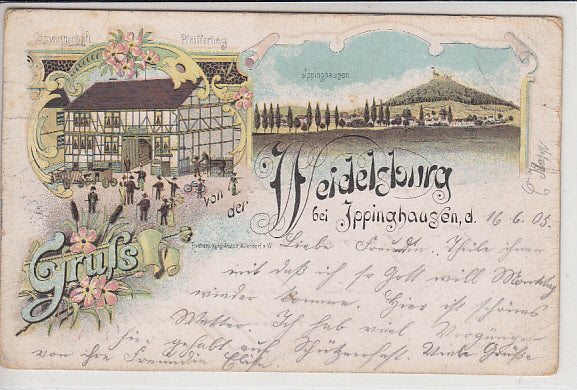 Gastwirthschaft Pfeifferling
Ippinghausen.
Gruss
von der Weidelsburg
bei Ippinghausen, d. 16.6.05.
Liebe Freundin. Theile ihnen
mit daß ich so Gott will Montag
wieder komme. Hier ist schönes
Wetter. Ich hab viel Vergnügen
hie gehabt auf Schützenfest. Viele Grüße
von ihre Freundin Elise